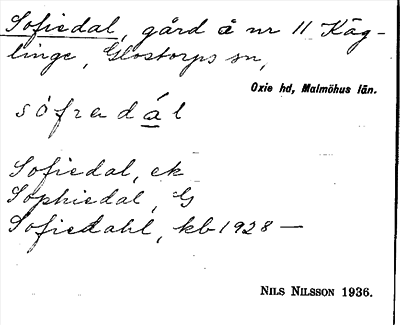 Sofiedal, gård å nr 11 Käg-
linge, Glostorps sn,
Oxie hd, Malmöhus län.
sófiedál
Sofiedal, ek
Sophiedal, G
Sofiedahl, kb 1928 —
NILS NILSSON 1936.